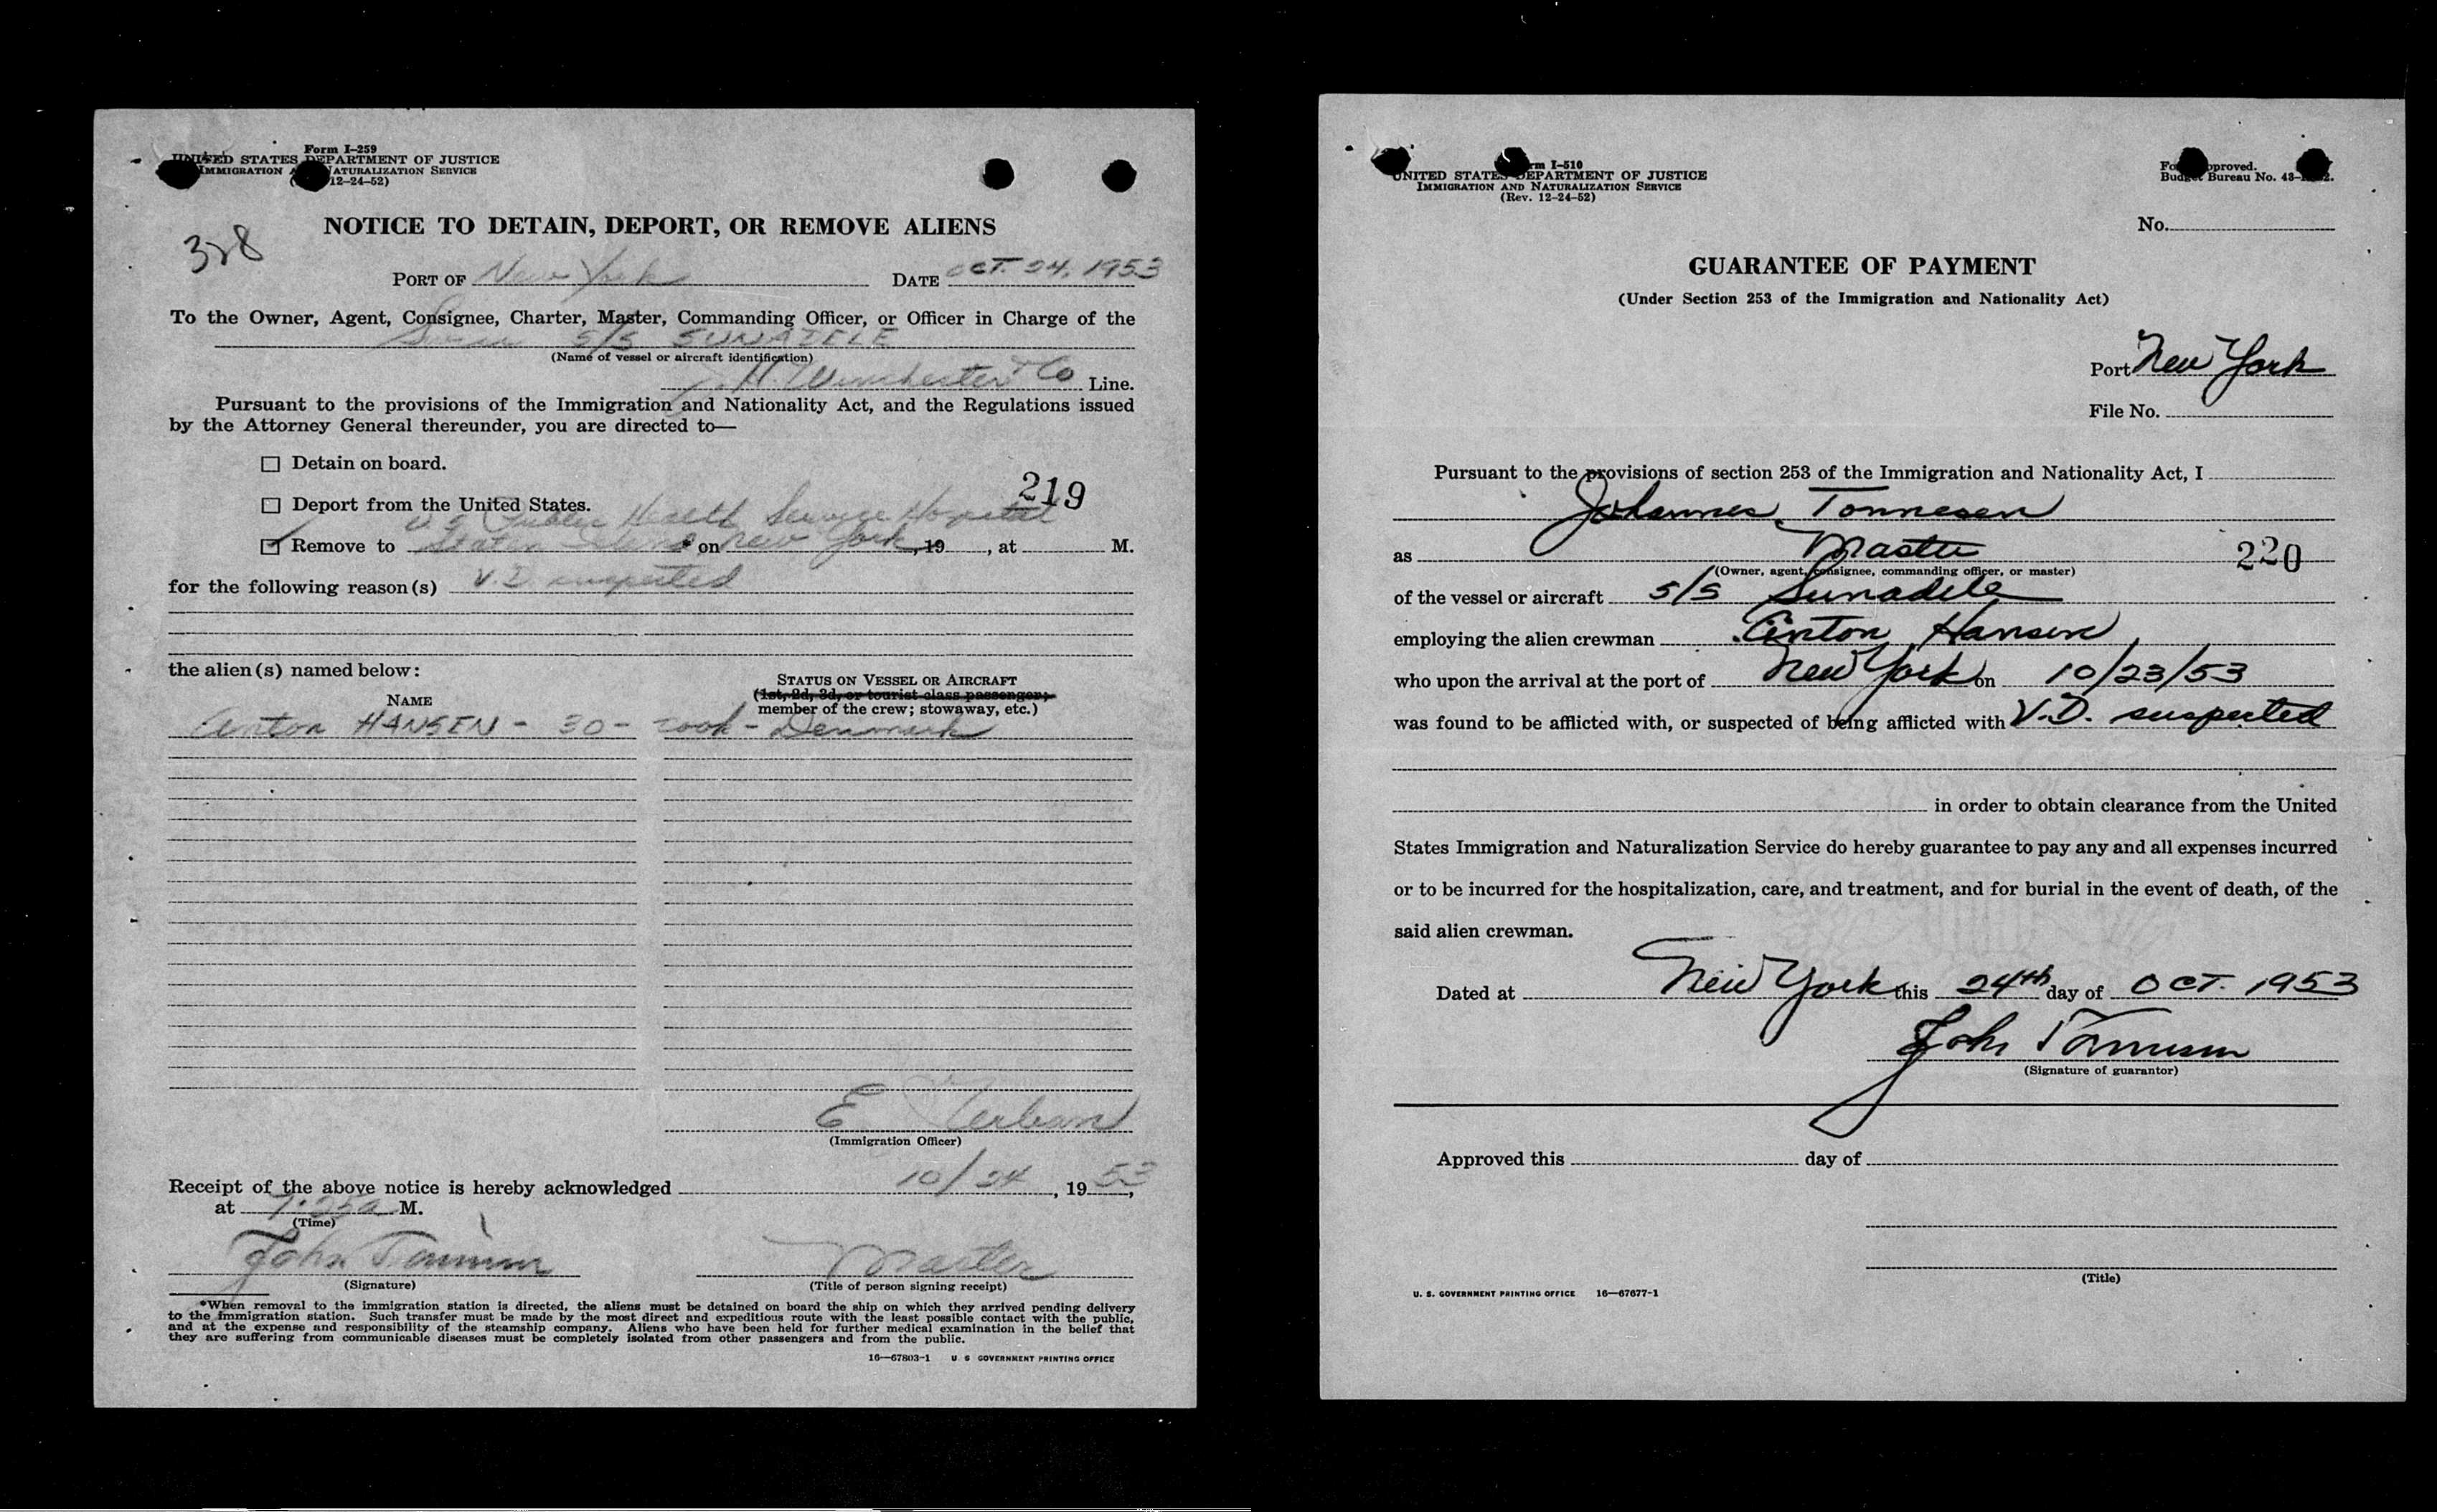 Form I-259
UNITED STATES DEPARTMENT OF JUSTICE
IMMIGRATION NATURALIZATION SERVICE
12-24-52)
328
NOTICE TO DETAIN, DEPORT, OR REMOVE ALIENS
PORT OF New York DATE OCT. 24, 1953
To the Owner, Agent, Consignee, Charter, Master, Commanding Officer, or Officer in Charge of the
S/S SUNADELE
(Name of vessel or aircraft identification)
J. H. Winchester & Co Line.
Pursuant to the provisions of the Immigration and Nationality Act, and the Regulations issued
by the Attorney General thereunder, you are directed to—
Detain on board.
219
Deport from the United States.
U.S. Public Health Service Hospital
Remove to Staten Island * on New York, 19 , at M.
for the following reason(s) V.D. suspected
the alien(s) named below:
NAME
STATUS ON VESSEL OR AIRCRAFT
(1st, 2d, 3d, or tourist class passenger;
member of the crew; stowaway, etc.)
Anton HANSEN - 30 - cook - Denmark
E
(Immigration Officer)
Receipt of the above notice is hereby acknowledged 10/24, 1953,
at 7:25a M.
(Time)
John Tonnesen Master
(Signature) (Title of person signing receipt)
*When removal to the immigration station is directed, the aliens must be detained on board the ship on which they arrived pending delivery
to the immigration station. Such transfer must be made by the most direct and expeditious route with the least possible contact with the public,
and at the expense and responsibility of the steamship company. Aliens who have been held for further medical examination in the belief that
they are suffering from communicable diseases must be completely isolated from other passengers and from the public.
16—67803-1 U S GOVERNMENT PRINTING OFFICE
rm I-510
UNITED STATES DEPARTMENT OF JUSTICE
IMMIGRATION AND NATURALIZATION SERVICE
(Rev. 12-24-52)
Fo pproved.
Budget Bureau No. 43-
No.
GUARANTEE OF PAYMENT
(Under Section 253 of the Immigration and Nationality Act)
Port New York
File No.
Pursuant to the provisions of section 253 of the Immigration and Nationality Act, I
Johannes Tonnesen
as Master 220
(Owner, agent, consignee, commanding officer, or master)
of the vessel or aircraft S/S Sunadele
employing the alien crewman Anton Hansen,
who upon the arrival at the port of New York on 10/23/53
was found to be afflicted with, or suspected of being afflicted with V.D. suspected
in order to obtain clearance from the United
States Immigration and Naturalization Service do hereby guarantee to pay any and all expenses incurred
or to be incurred for the hospitalization, care, and treatment, and for burial in the event of death, of the
said alien crewman.
Dated at New York this 24th day of OCT. 1953
John Tonnesen
(Signature of guarantor)
Approved this day of
(Title)
U. S. GOVERNMENT PRINTING OFFICE 16—67677-1